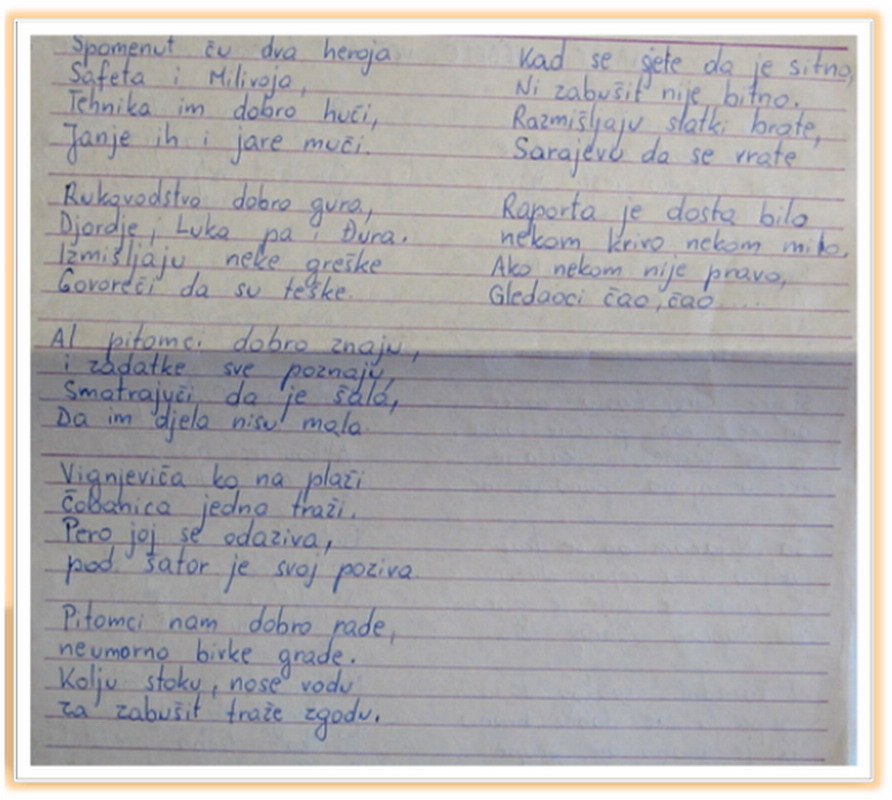 Spomenut ču dva heroja
Safeta i Milivoja,
Tehnika im dobro huči,
Janje ih i jare muči.
Rukovodstvo dobro gura,
Djordje, Luka pa i Đura.
Izmišljaju neke greške
Govoreči da su teške.
Al pitomci dobro znaju,
i zadatke sve poznaju,
Smatrajuči da je šala,
Da im djela nisu mala.
Vignjeviča ko na plaži
Čobanica jedna traži.
Pero joj se odaziva,
pod šator je svoj poziva
Pitomci nam dobro rade,
neumorno bivke grade.
Kolju stoku, nose vodu
za zabušit traže zgodu.
Kad se sjete da je sitno,
Ni zabušit nije bitno.
Razmišljaju slatki brate,
Sarajevu da se vrate
Raporta je dosta bilo
nekom krivo nekom milo,
Ako nekom nije pravo,
Gledaoci čao, čao ....